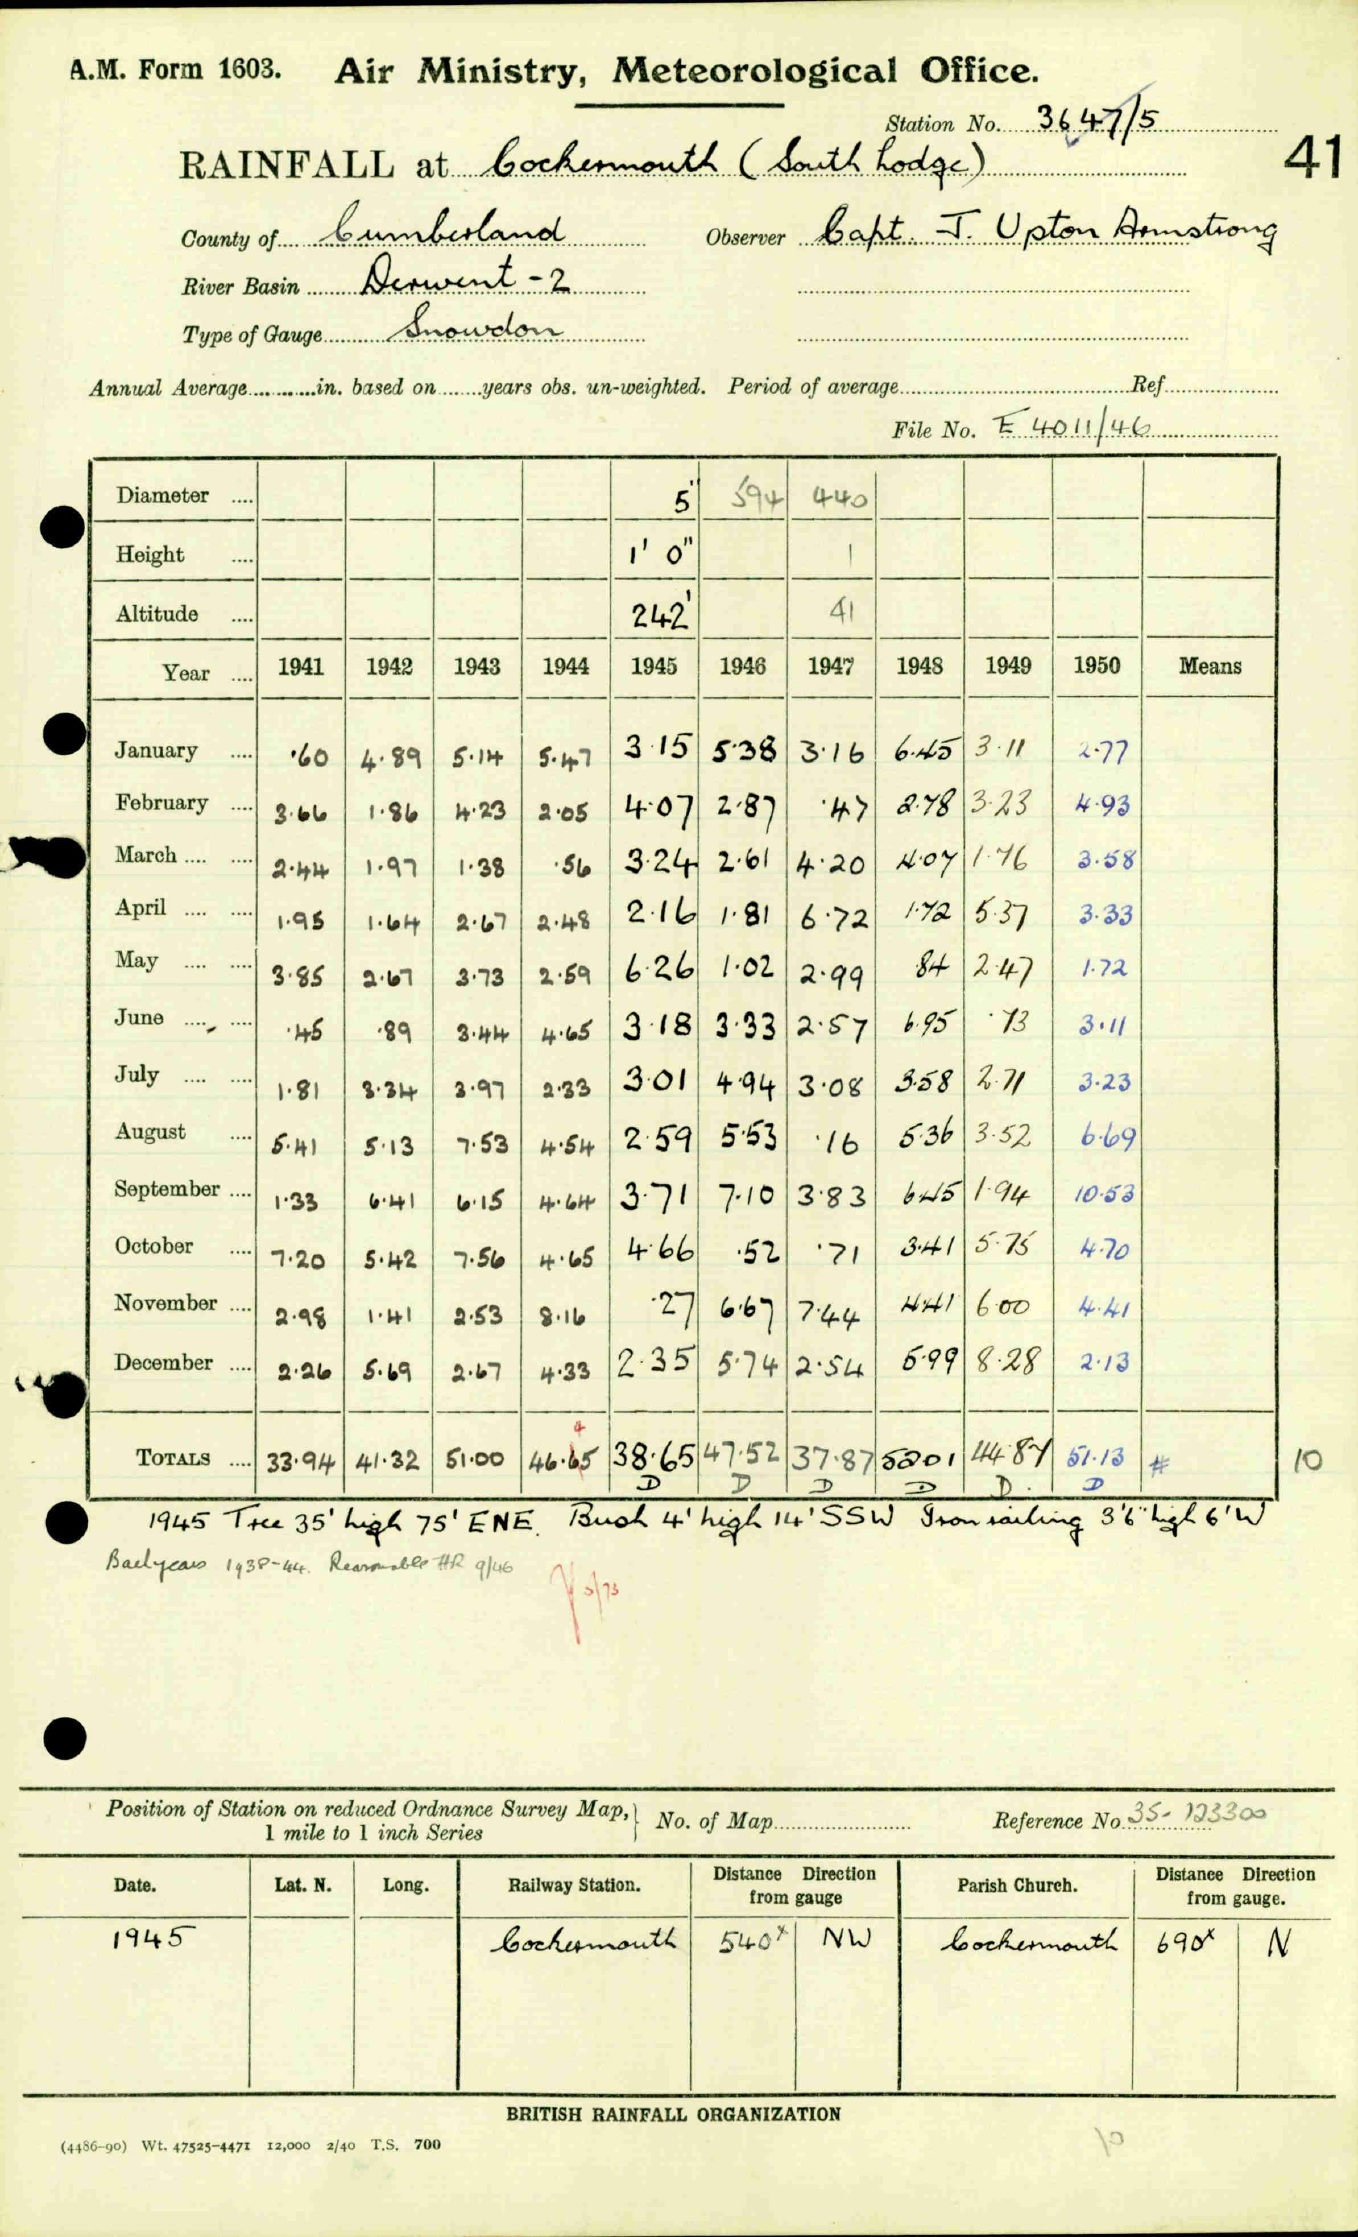 A.M. Form 1603. Air Ministry, Meteorological Office.
Station No. 3647/5
41
RAINFALL at Cockermouth (South Lodge)
County of Cumberland Observer Capt. J. Upton Armstrong
River Basin Derwent - 2
Type of Gauge Snowdon
Annual Average in. based on years obs. un-weighted. Period of average Ref
File No. E 4011/46
Diameter 5" 594 440
Height 1' 0" 1
Altitude 242' 41
Year 1941 1942 1943 1944 1945 1946 1947 1948 1949 1950 Means
January .60 4.89 5.14 5.47 3.15 5.38 3.16 6.45 3.11 2.77
February 3.66 1.86 4.23 2.05 4.07 2.87 .47 2.78 3.23 4.93
March 2.44 1.97 1.38 .56 3.24 2.61 4.20 4.07 1.76 3.58
April 1.95 1.64 2.67 2.48 2.16 1.81 6.72 1.72 5.37 3.33
May 3.85 2.67 3.73 2.59 6.26 1.02 2.99 84 2.47 1.72
June .45 .89 3.44 4.65 3.18 3.33 2.57 6.95 .73 3.11
July 1.81 3.34 3.97 2.33 3.01 4.94 3.08 3.58 2.71 3.23
August 5.41 5.13 7.53 4.54 2.59 5.53 .16 5.36 3.52 6.69
September 1.33 6.41 6.15 4.64 3.71 7.10 3.83 6.45 1.94 10.53
October 7.20 5.42 7.56 4.65 4.66 .52 .71 3.41 5.75 4.70
November 2.98 1.41 2.53 8.16 .27 6.67 7.44 4.41 6.00 4.41
December 2.26 5.69 2.67 4.33 2.35 5.74 2.54 5.99 8.28 2.13
4
TOTALS 33.94 41.32 51.00 46.65 38.65 47.52 37.87 52.01 44.87 51.13 # 10
D D D D D. D
1945 Tree 35' high 75' ENE. Bush 4' high 14' SSW Iron railing 3'6" high 6' W
Backyears 1938-44. Reasonable HR 9/46
5/73
Position of Station on reduced Ordnance Survey Map, No. of Map Reference No. 35- 123300
1 mile to 1 inch Series
Date. Lat. N. Long. Railway Station. Distance Direction from gauge Parish Church. Distance Direction from gauge.
1945 Cockermouth 540x NW Cockermouth 690x N
BRITISH RAINFALL ORGANIZATION
(4486-90) Wt. 47525-4471 12,000 2/40 T.S. 700
10